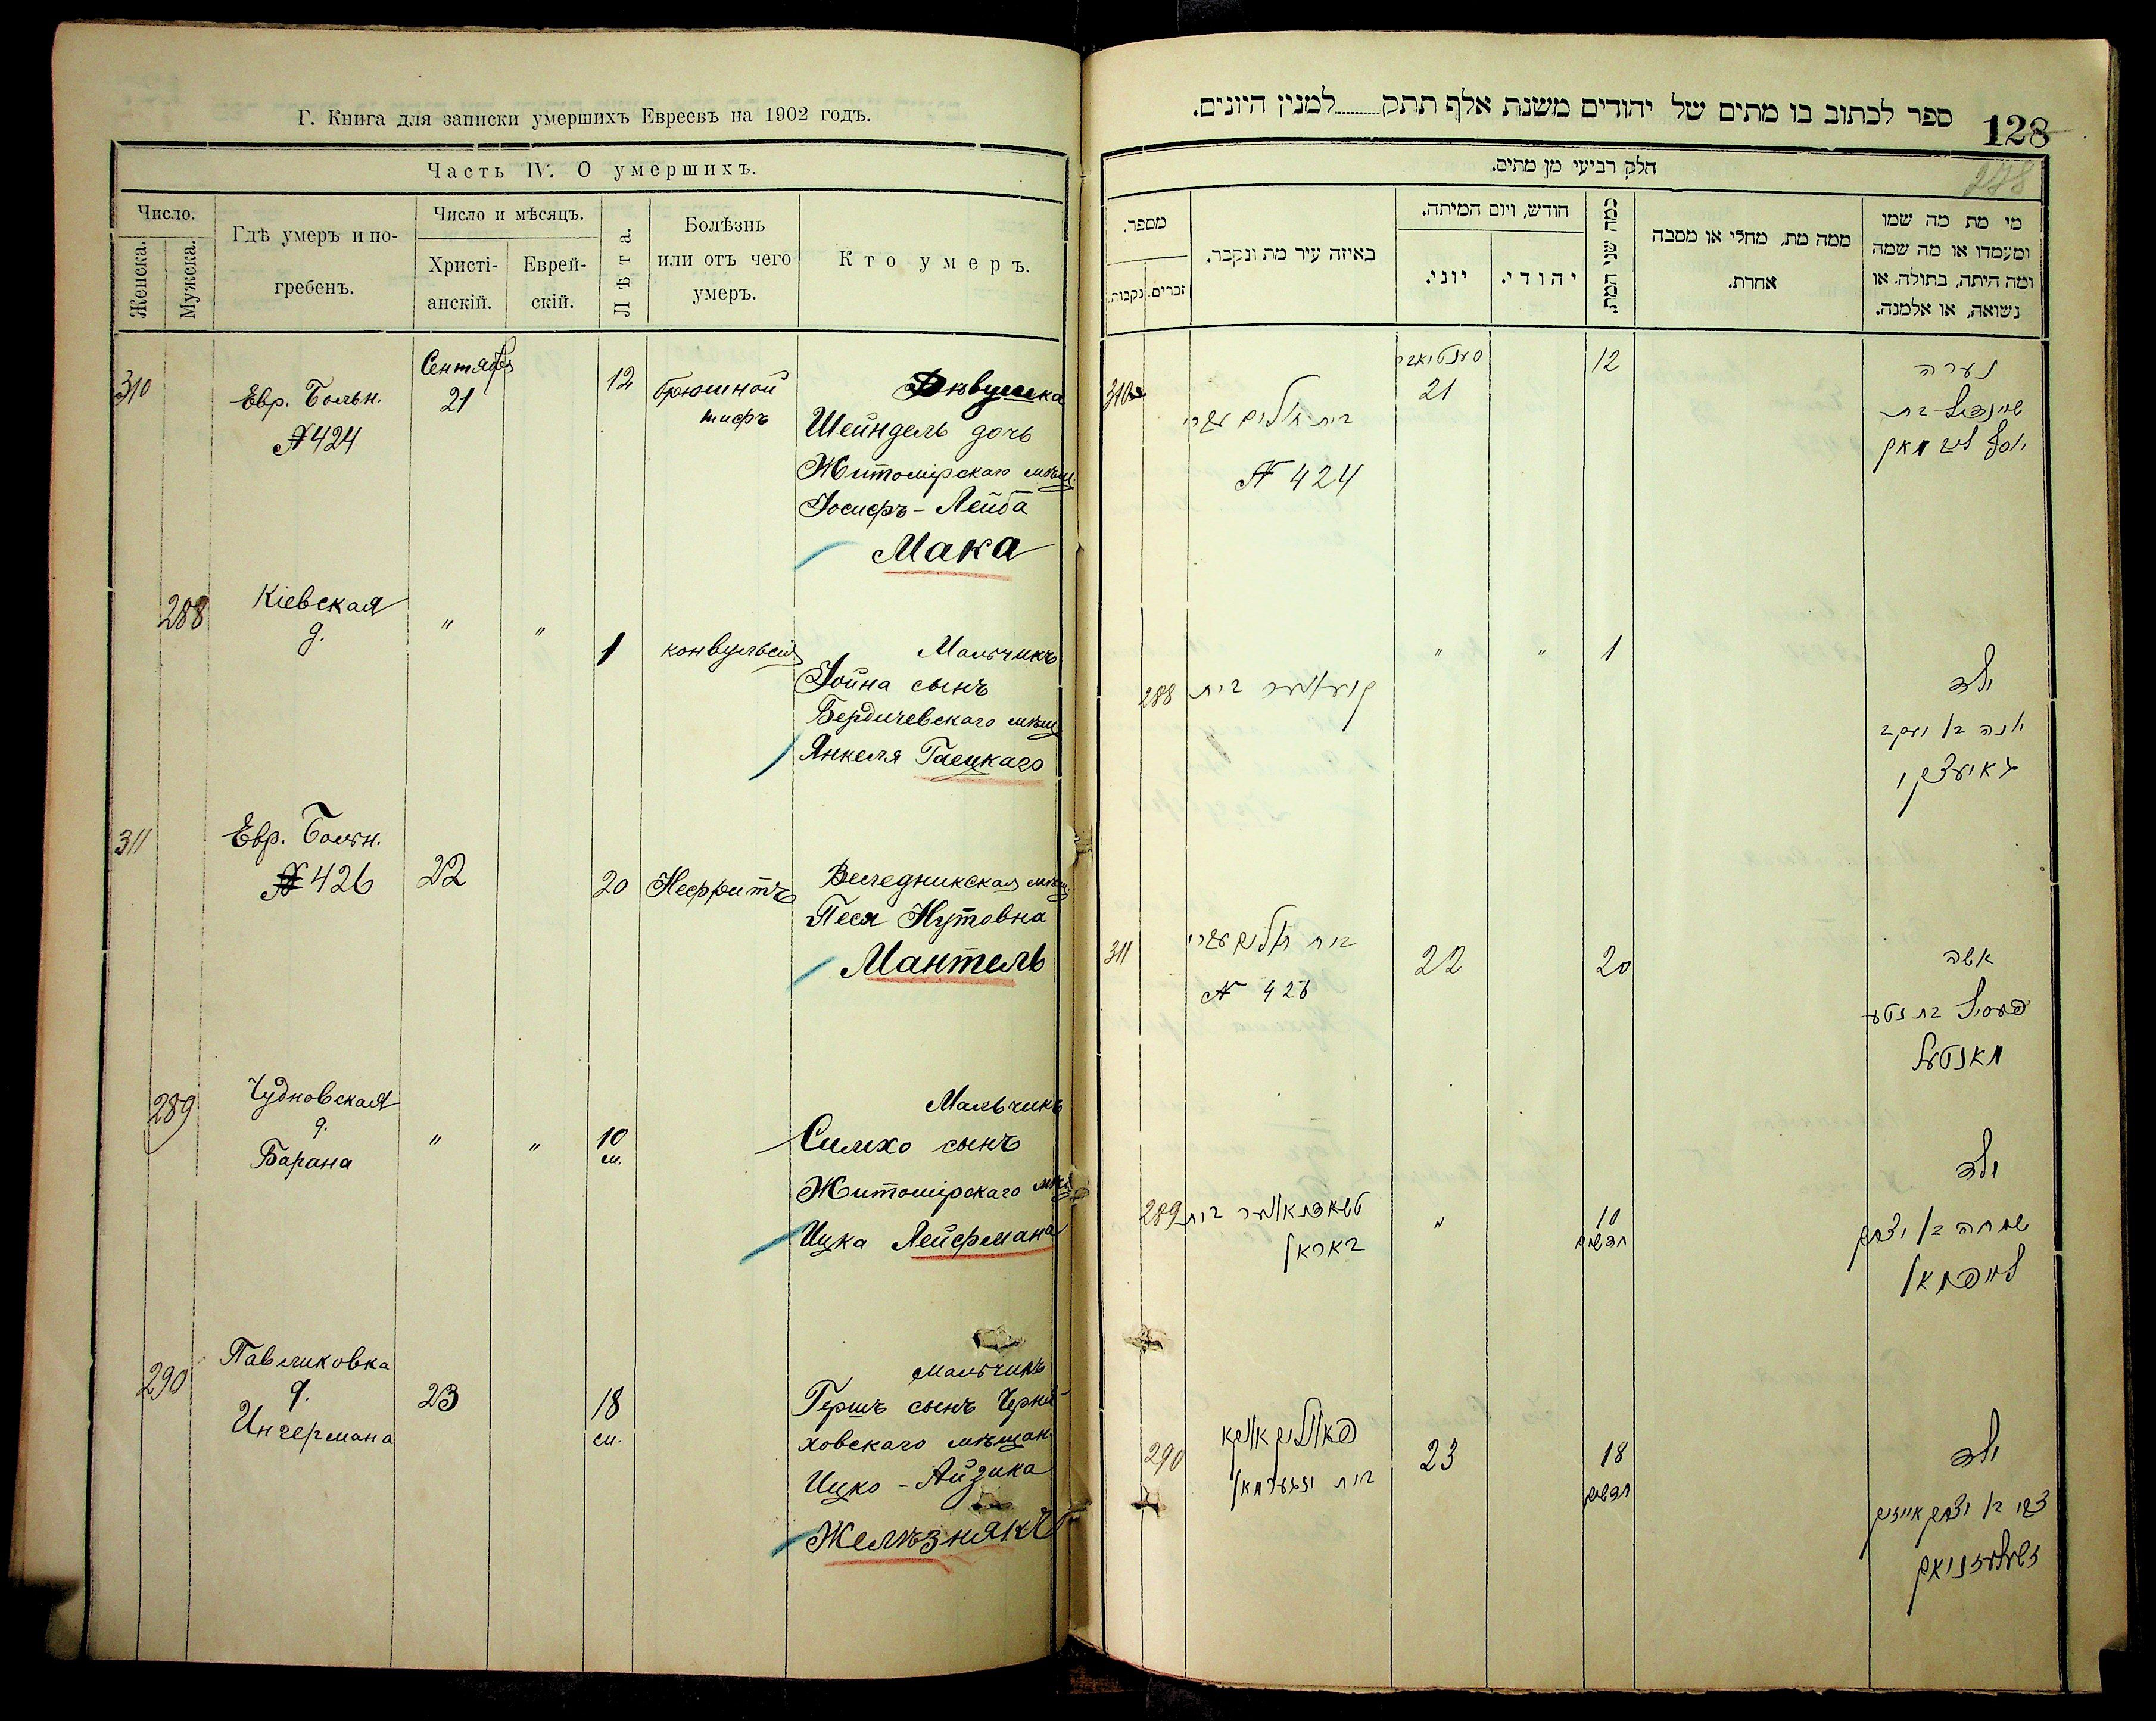 Г. Книга для записки умершихъ Евреевъ на 1902 годъ.
Часть IV. О умершихъ.
Число.
Женска.
Мужска.
Гдѣ умеръ и по-
гребенъ.
Число и мѣсяцъ.
Христі-
анскій.
Еврей-
скій.
Лѣта.
Болѣзнь
или отъ чего
умеръ.
Кто умеръ.
310
Евр. Больн.
№ 424
Сентября
21
12
брюшной
тифъ
Дѣвушка
Шейндель дочь
Житомірскаго мѣщ.
Іосифъ-Лейба
Мака
288
Кіевская
д.
" "
1
конвульсія
Мальчикъ
Іойна сынъ
Бердичевскаго мѣщ
Янкеля Гаецкаго
311
Евр. Больн.
№ 426
22
20
Нефритъ
Веледникская мѣщ
Песя Нутовна
Мантель
289
Чудновская
д.
Барана
" "
10
м.
Мальчикъ
Симхо сынъ
Житомірскаго мѣщ
Ицка Лейфмана
290
Павликовка
д.
Ингермана
23
18
м.
Мальчикъ
Гершъ сынъ Черня
ховскаго мѣщан.
Ицко-Айзика
Желѣзнякъ
ספר לכתוב בו מתים של יהודים משנת אלף תתק........למנין היונים.
128
278
חלק רביעי מן מתים.
מספר.
נקבות.
זכרים.
באיזה עיר מת ונקבר.
חודש, ויום המיתה.
יוני.
יהודי.
כמה שני המת.
ממה מת, מחלי או מסבה
אחרת.
מי מת מה שמו
ומעמדו או מה שמה
ומה היתה, בתולה, או
נשואה, או אלמנה.
310
בית חולים עברי
№ 424
סענטיאבר
21
12
נערה
שיינדיל בת
יוסף ליב מאק
288
קיעוולער בית
" "
1
ילד
יונה בן יעקב
גאיעצקי
311
בית חולים עברי
№ 426
22
20
אשה
פעסיל בת נטע
מאנטעל
289
טשאדנאוולער בית
באראן
"
10
חדשים
ילד
שמחה בן יצחק
לייפמאן
290
פאוולקאווקא
בית ינגערמאן
23
18
חדשים
ילד
צבי בן יצחק אייזיק
זשעלעזניאק